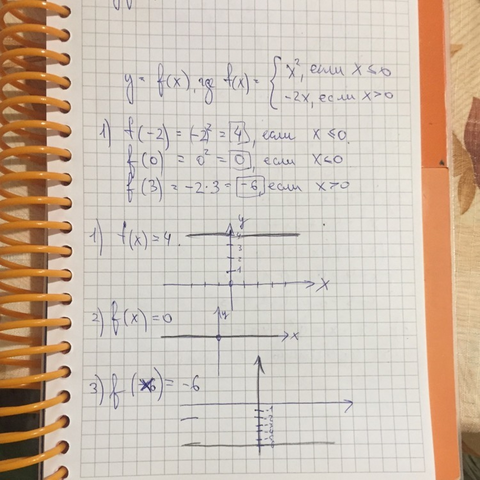 y = f(x), где f(x) = { x², если x ≤ 0
-2x, если x > 0
1) f(-2) = (-2)² = 4, если x ≤ 0.
f(0) = 0² = 0, если x ≤ 0
f(3) = -2·3 = -6, если x > 0
1) f(x) = 4.
y
4
3
2
1
x
2) f(x) = 0
y
x
3) f( ) = -6